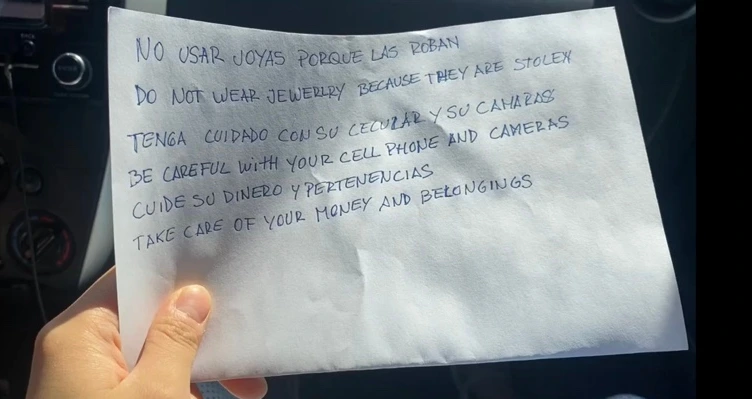 NO USAR JOYAS PORQUE LAS ROBAN
DO NOT WEAR JEWERLRY BECAUSE THEY ARE STOLEN
TENGA CUIDADO CON SU CECULAR Y SU CAMARAS
BE CAREFUL WITH YOUR CELL PHONE AND CAMERAS
CUIDE SU DINERO Y PERTENENCIAS
TAKE CARE OF YOUR MONEY AND BELONGINGS